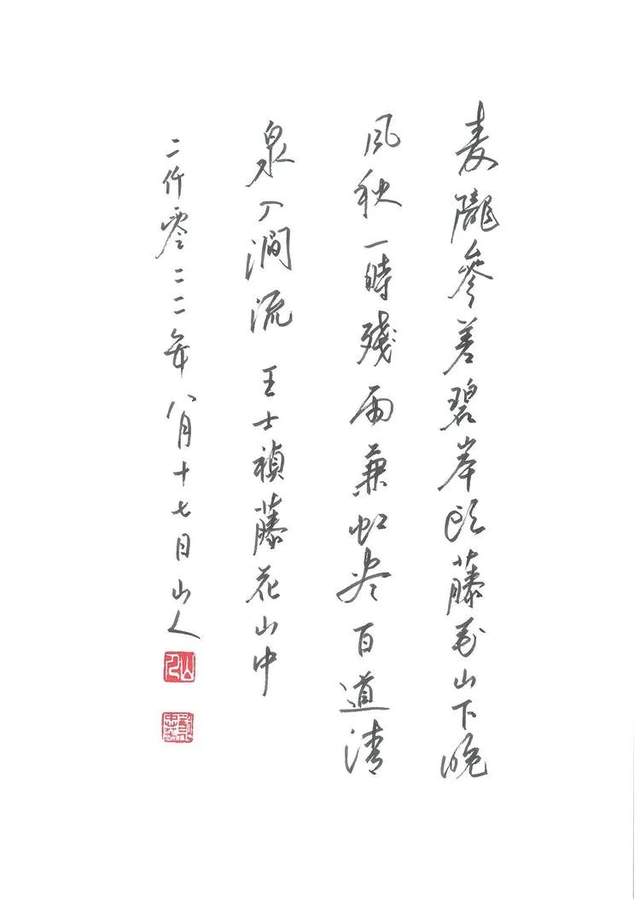 麦隴參差碧岸头藤花山下晚
风秋一時殘雨兼虹尽百道清
泉入澗流 王士禎藤花山中
二仟零二二年八月十七日山人
山人